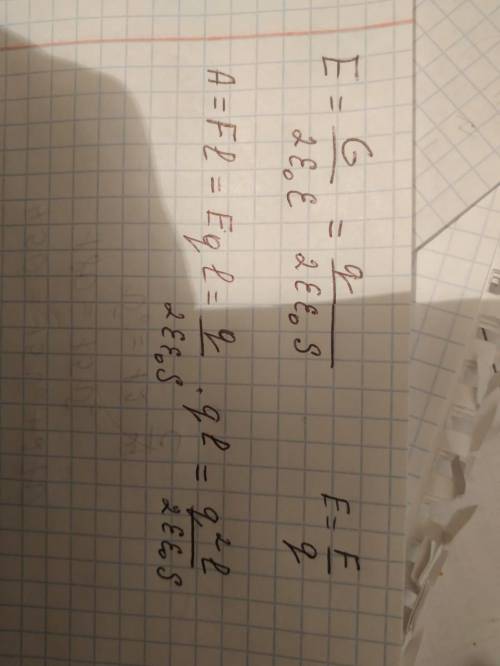 E = σ/2ε₀ε = q/2εε₀S
E = F/q
A = Fl = Eql = q/2εε₀S · ql = q²l/2εε₀S